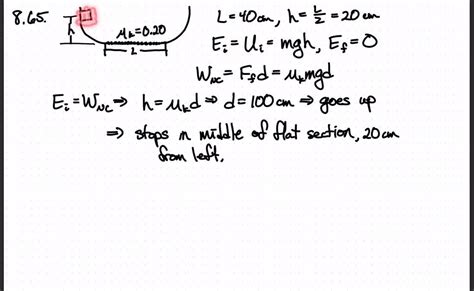 8.65.
h
μₖ=0.20
L
L=40cm, h=L/2=20 cm
Eᵢ=Uᵢ=mgh, E_f=0
W_NC=F_f d=μₖmgd
Eᵢ=W_NC ⇒ h=μₖd ⇒ d=100cm ⇒ goes up
⇒ stops in middle of flat section, 20cm
from left.